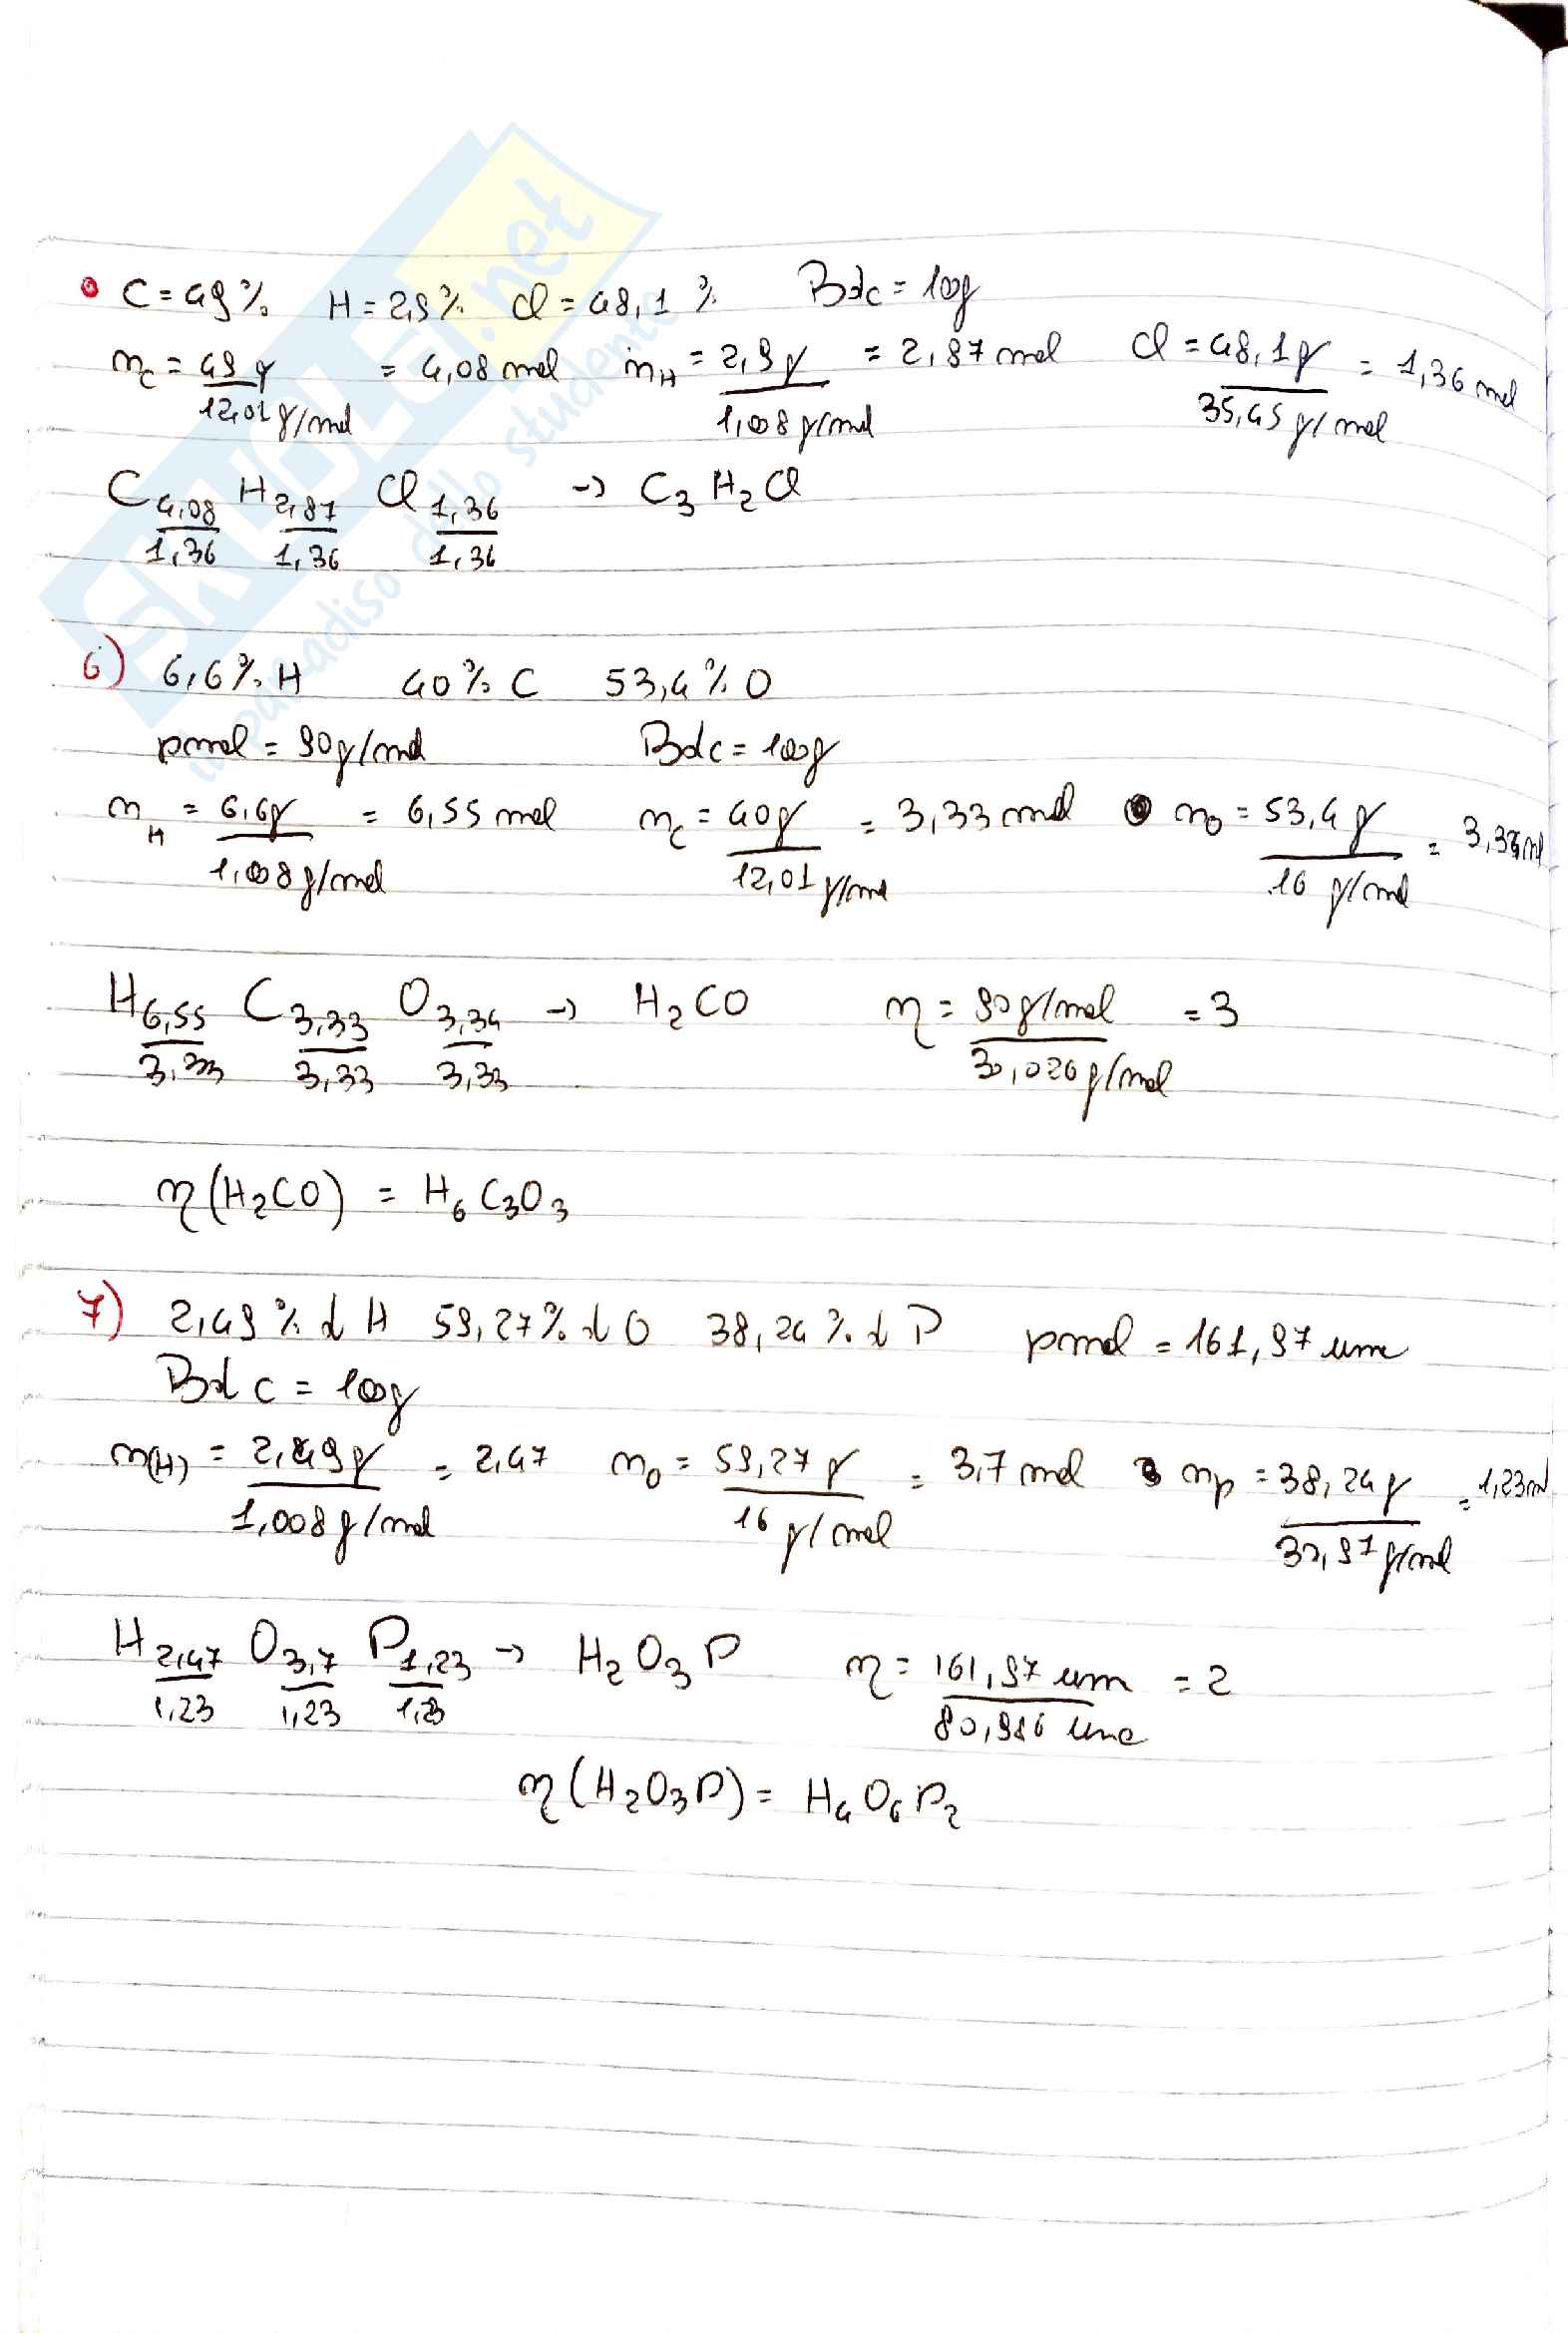 SKUOLA.net
il paradiso dello studente
C = 49% H = 2,9% Cl = 48,1% Bdc = 100g
nC = 49 g / 12,01 g/mol = 4,08 mol nH = 2,9 g / 1,008 g/mol = 2,87 mol Cl = 48,1 g / 35,45 g/mol = 1,36 mol
C 4,08/1,36 H 2,87/1,36 Cl 1,36/1,36 → C3 H2 Cl
6) 6,6% H 40% C 53,4% O
pmol = 90 g/mol Bdc = 100g
nH = 6,6g / 1,008 g/mol = 6,55 mol nC = 40g / 12,01 g/mol = 3,33 mol nO = 53,4 g / 16 g/mol =
H 6,55/3,33 C 3,33/3,33 O 3,34/3,33 → H2CO n = 90 g/mol / 30,026 g/mol = 3
n (H2CO) = H6 C3O3
7) 2,49% d H 59,27% d O 38,24% d P pmol = 161,97 uma
Bdc = 100g
n(H) = 2,49g / 1,008 g/mol = 2,47 nO = 59,27 g / 16 g/mol = 3,7 mol nP = 38,24 g / 30,97 g/mol = 1,23 mol
H 2,47/1,23 O 3,7/1,23 P 1,23/1,23 → H2O3P n = 161,97 um / 80,986 uma = 2
n (H2O3P) = H4 O6 P2